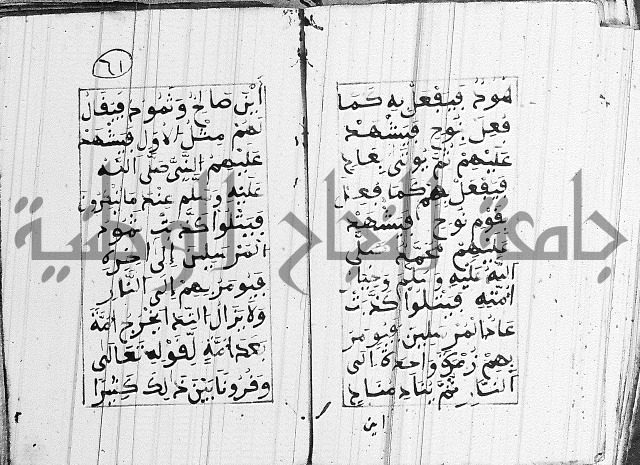 هود فيفعل به كما
فعل نوح فيشهد
عليهم ثم يوتى بعاد
فيفعل بهم كما فعل
بقوم نوح فيشهد
عليهم محمد صلى
الله عليه وسلم
امته فيتلوا كذبت
عاد المرسلين فيومر
بهم زمرة واحدة الى
النار ثم يناد مناد
اين
٦١
أين صالح وثمود فيقال
لهم مثل الاول فيشهد
عليهم النبي صلى الله
عليه وسلم عند ما ينكرون
فيتلوا كذبت ثمود
المرسلين إلى اخره
فيومر بهم إلى النار
ولا يزال الله يخرج امة
بعد امة لقوله تعالى
وقرونا بين ذلك كثيرا
جامعة النجاح الوطنية